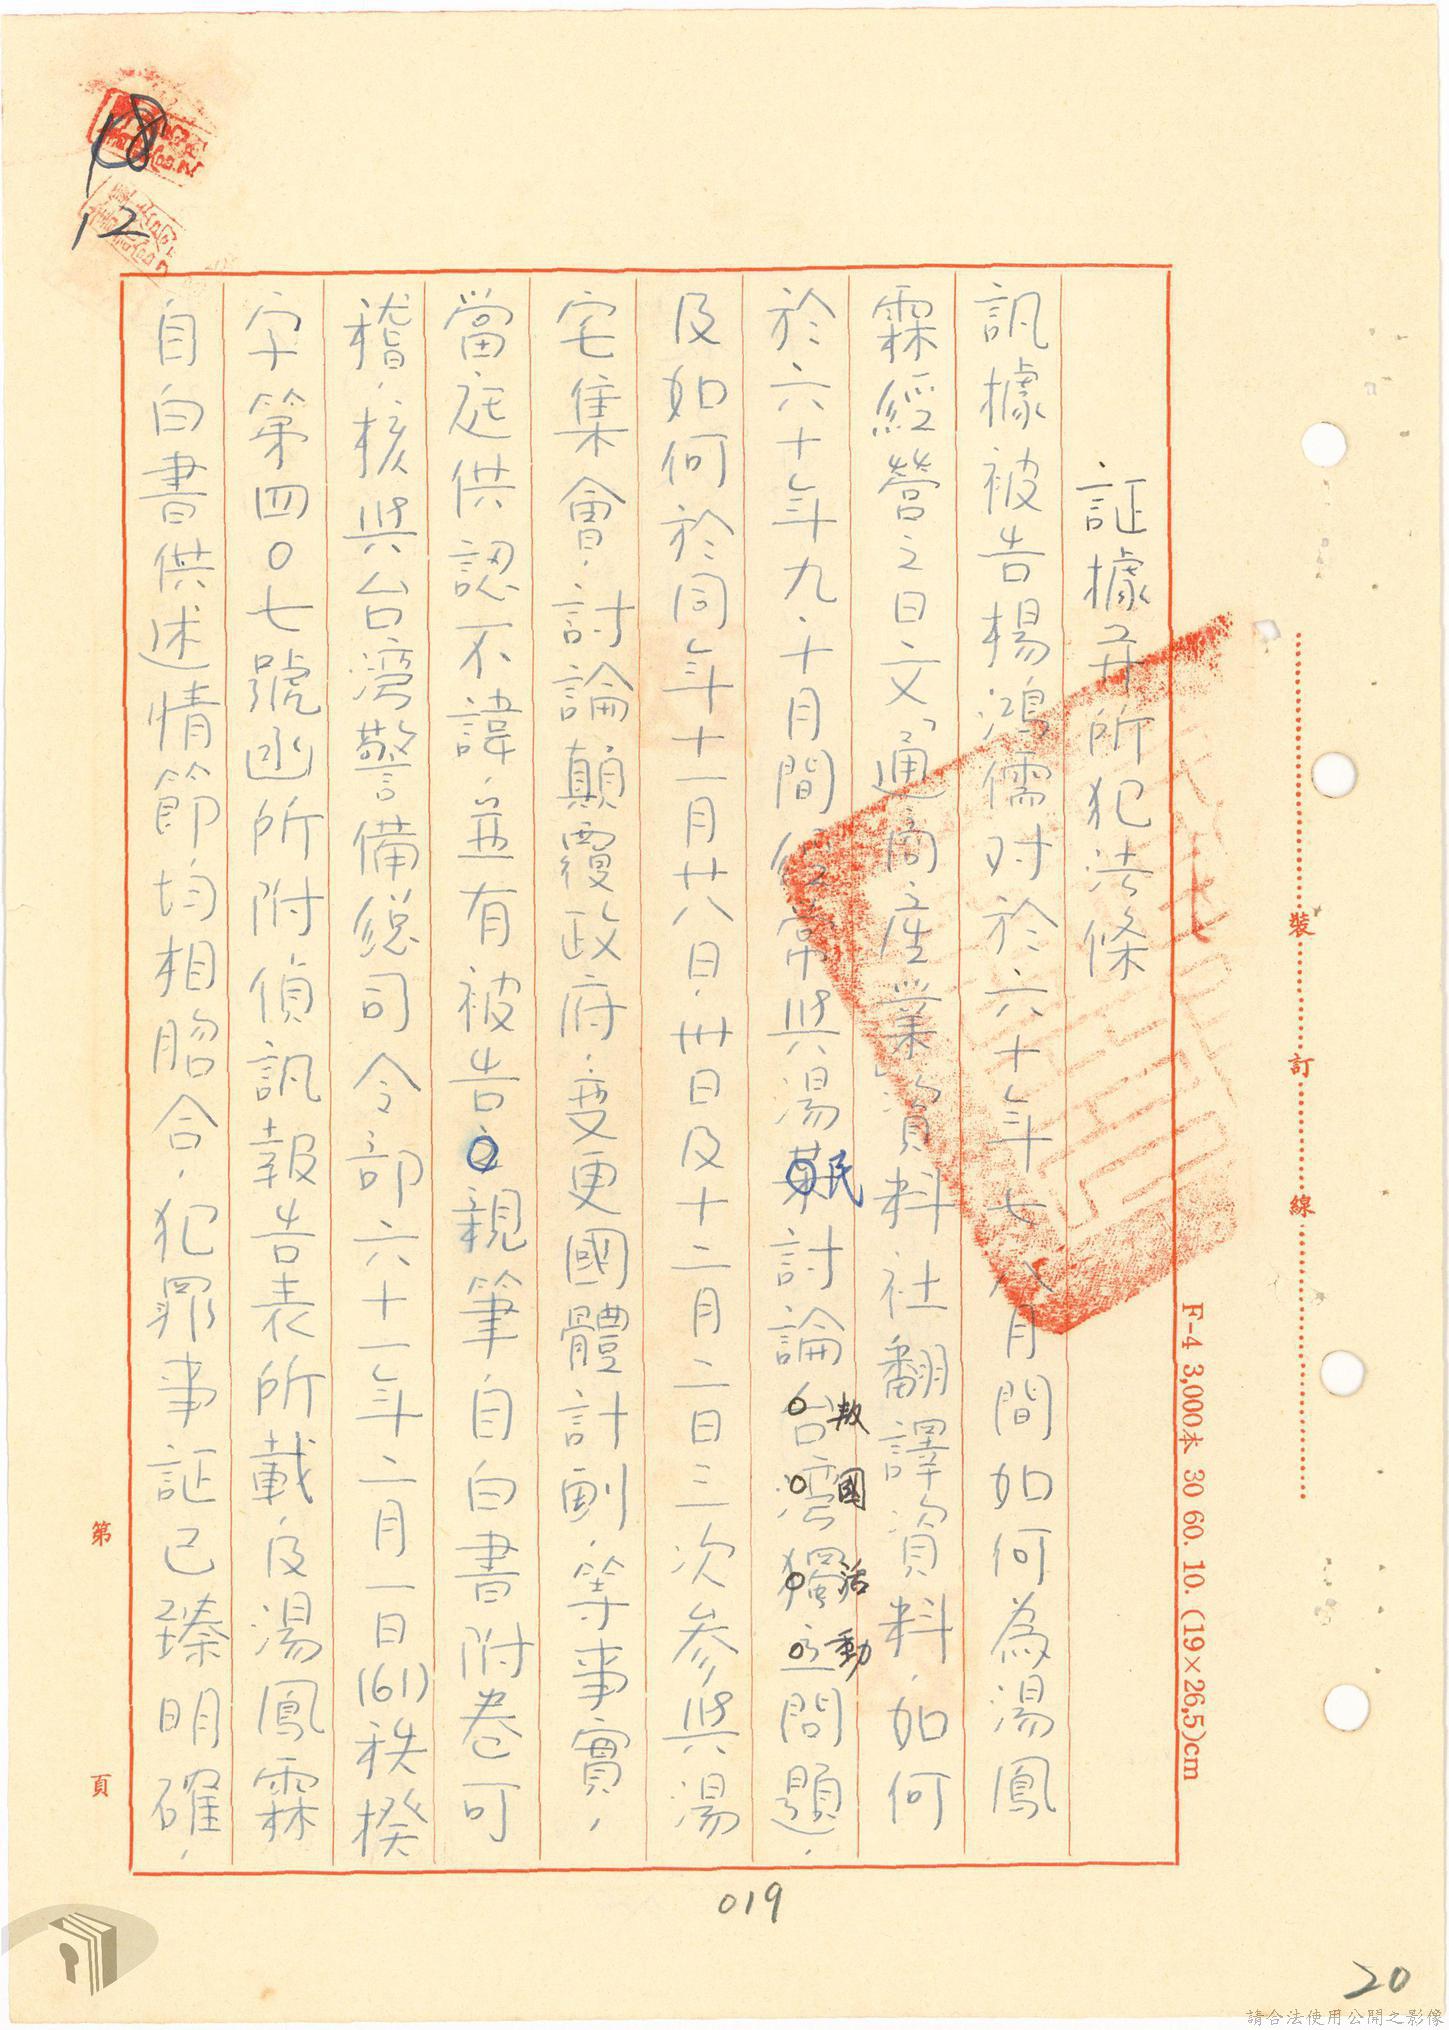 証據并所犯法條
訊據被告楊鴻儒对於六十年七八月間如何為湯鳳
霖經營之日文「通商産業」資料社翻譯資料．如何
於六十年九．十月間經常與湯某民討論台灣獨立叛國活動問題．
及如何於同年十一月廿八日．卅日及十二月二日三次参與湯
宅集會．討論顛覆政府．変更國體計劃．等事實，
當庭供認不諱．並有被告之親筆自白書附卷可
稽．核與台湾警備総司令部六十一年二月一日(61)秩揆
字第四〇七號函所附偵訊報告表所載及湯鳳霖
自白書供述情節均相脗合．犯罪事証已臻明確，
18
12
裝
訂
線
F-4 3,000本 30 60. 10. (19×26,5)cm
第
頁
019
20
請合法使用公開之影像